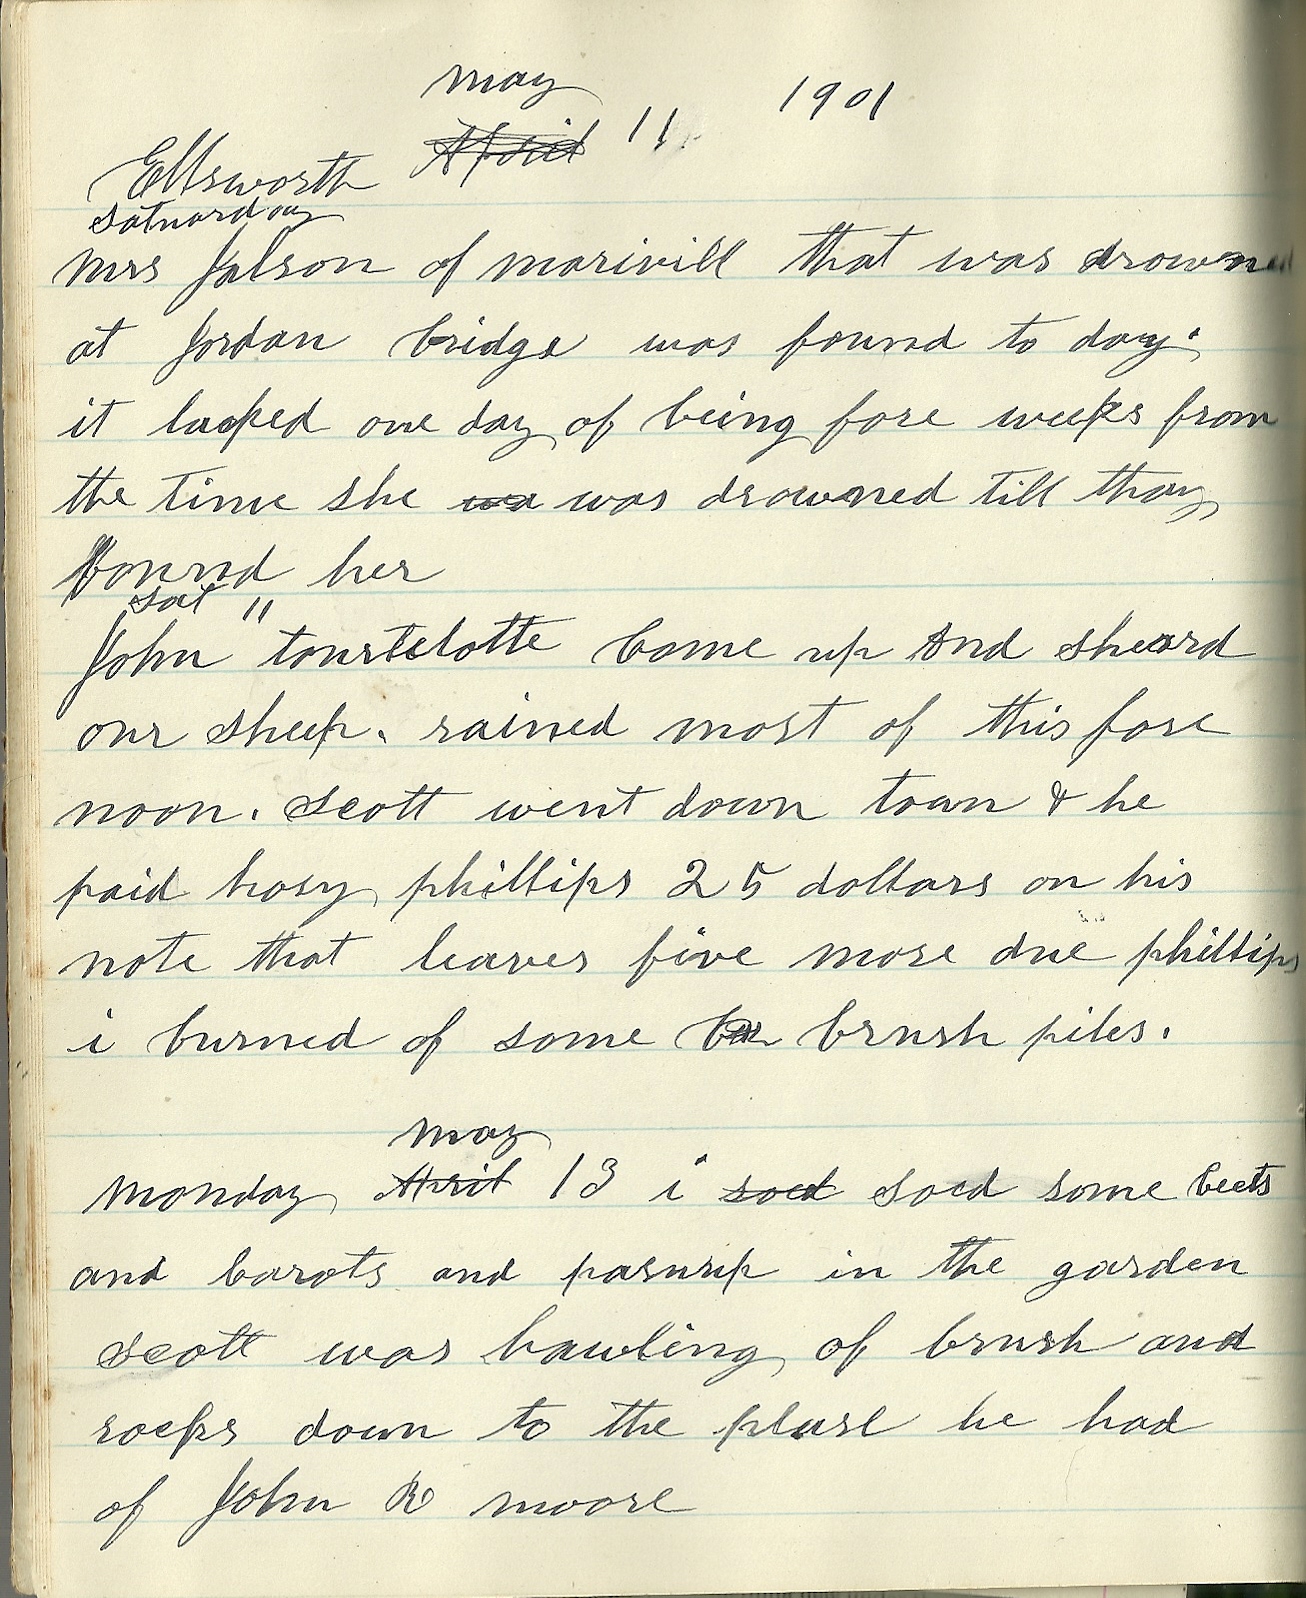 may 1901
Ellsworth April 11
saturday
mrs Jolson of marivill that was drowned
at Jordan bridge was found to day.
it lacked one day of being fore weeks from
the time she wa was drowned till thay
found her
sat "
John tourtelotte Come up and sheard
our sheep. rained most of this fore
noon. scott went down town & he
paid hosy phillips 25 dollars on his
note that leaves five more due phillips
i burned of some brush piles.
may
monday April 13 i soed some beets
and Carots and parsnip in the garden
scott was hawling of brush and
rocks down to the plase he had
of John R moore